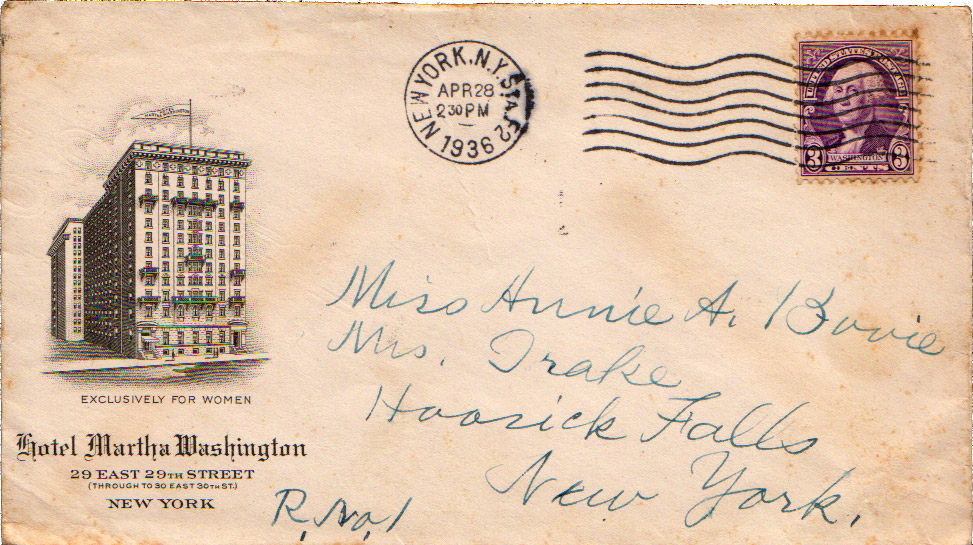 NEW YORK, N.Y. STA. F2
APR 28
2 30 PM
1936
UNITED STATES POSTAGE
3 WASHINGTON 3
CENTS
MARTHA WASHINGTON
EXCLUSIVELY FOR WOMEN
Hotel Martha Washington
29 EAST 29TH STREET
(THROUGH TO 30 EAST 30TH ST.)
NEW YORK
Miss Annie A. Bovie
Mrs. Drake
Hoosick Falls
New York.
R. No. 1